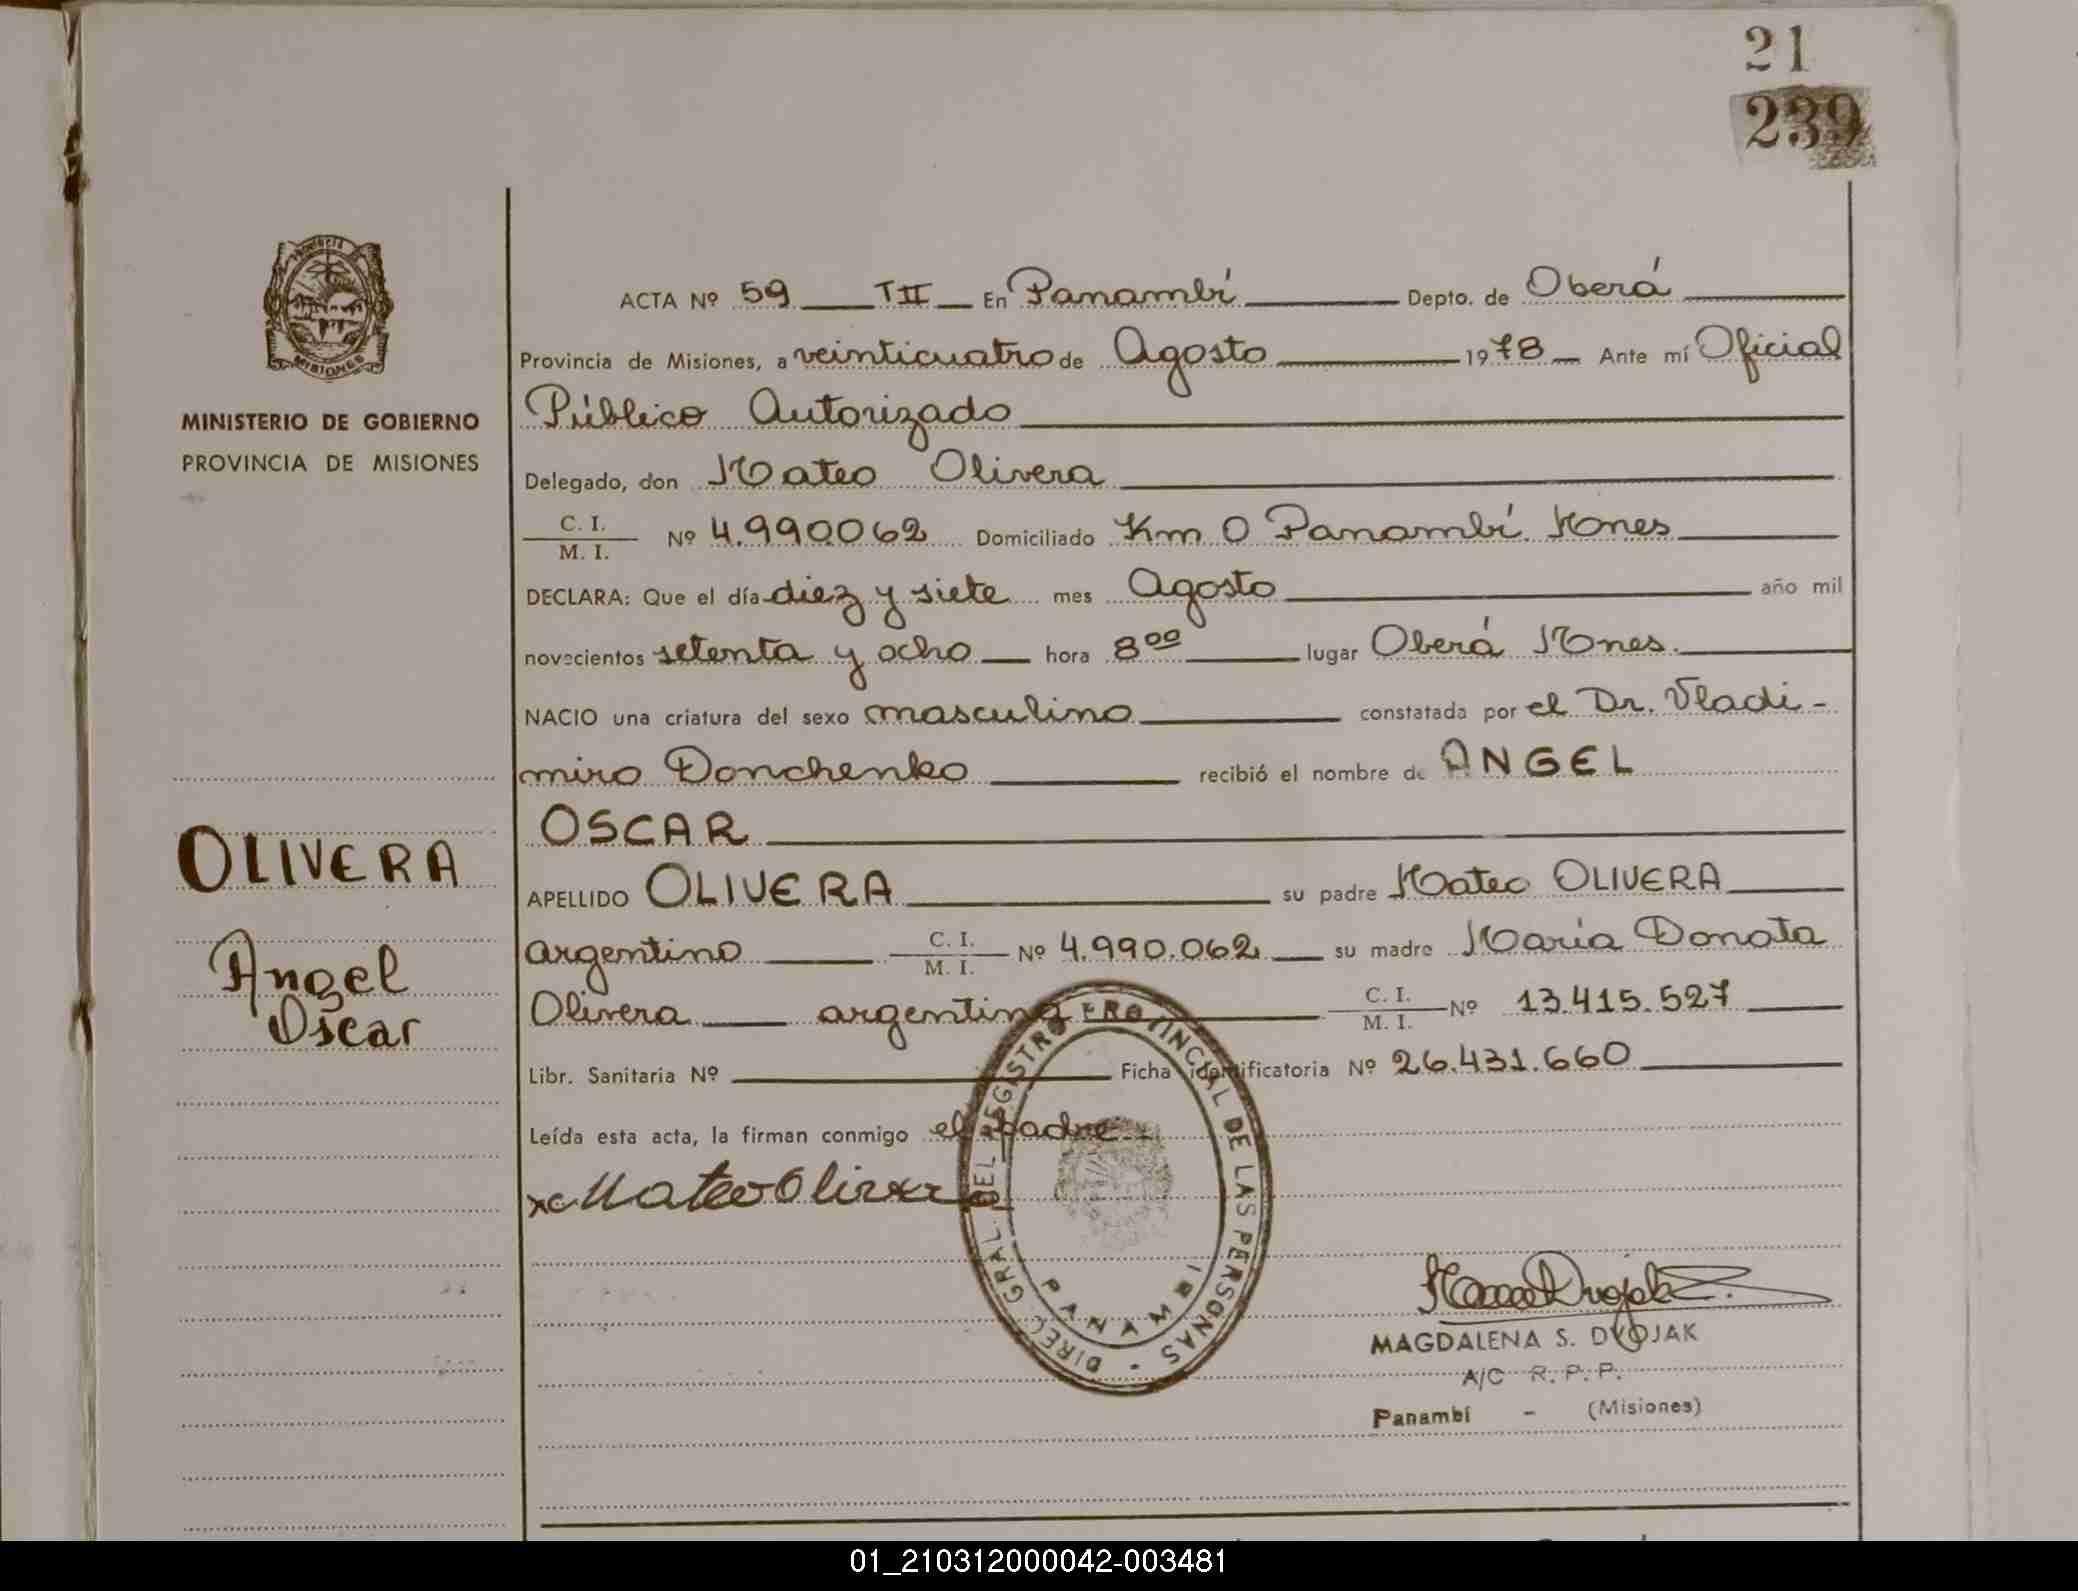 21
239
PROVINCIA
MISIONES
MINISTERIO DE GOBIERNO
PROVINCIA DE MISIONES
OLIVERA
Angel
Oscar
ACTA Nº 59 TII En Panambí Depto. de Oberá
Provincia de Misiones, a veinticuatro de Agosto 1978 Ante mí Oficial
Público Autorizado
Delegado, don Mateo Olivera
C. I.
M. I. Nº 4.990062 Domiciliado Km 0 Panambí Mnes
DECLARA: Que el día diez y siete mes Agosto año mil
novecientos setenta y ocho hora 8⁰⁰ lugar Oberá Mnes.
NACIO una criatura del sexo masculino constatada por el Dr. Vladi-
miro Donchenko recibió el nombre de ANGEL
OSCAR
APELLIDO OLIVERA su padre Mateo OLIVERA
argentino C. I.
M. I. Nº 4.990.062 su madre María Donata
Olivera argentina C. I.
M. I. Nº 13.415.527
Libr. Sanitaria Nº Ficha identificatoria Nº 26.431.660
Leída esta acta, la firman conmigo el padre
Mateo Olivera
DIREC. GRAL. DEL REGISTRO PROVINCIAL DE LAS PERSONAS -
PANAMBI
MAGDALENA S. DVOJAK
A/C R. P. P.
Panambí - (Misiones)
01_210312000042-003481